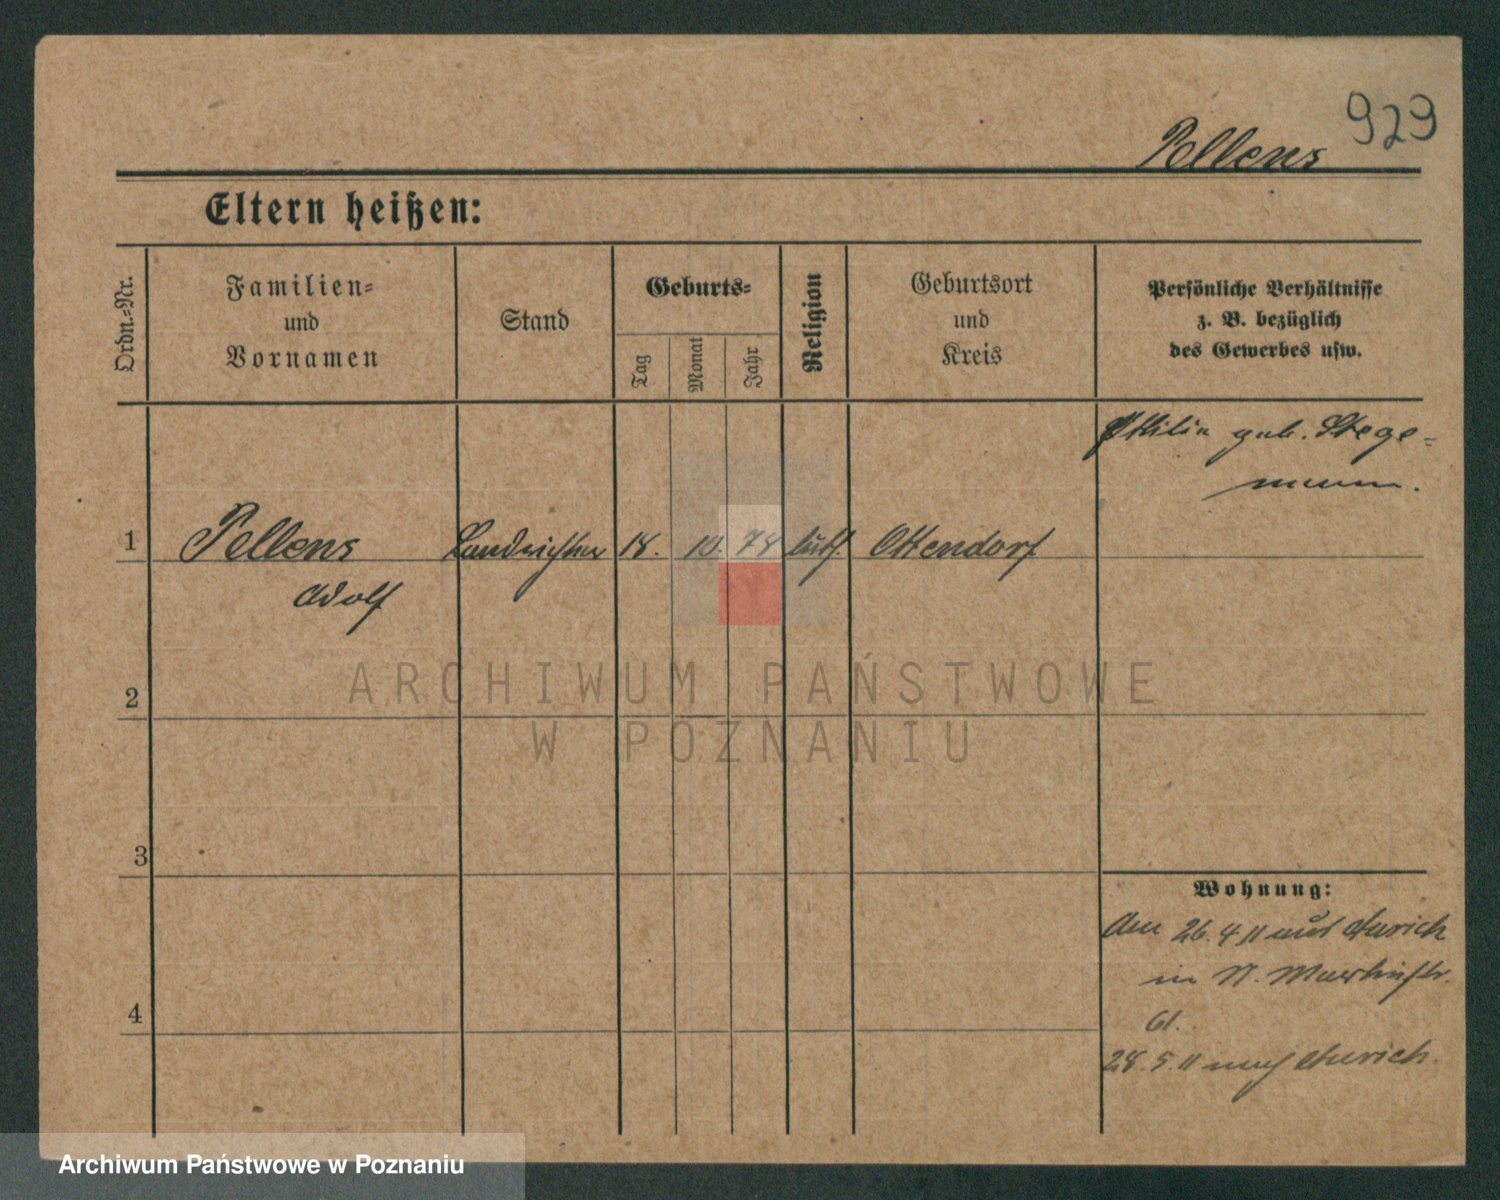 929
Pellens
Eltern heißen:
Ordn.-Nr.
Familien-
und
Vornamen
Stand
Geburts-
Tag
Monat
Jahr
Religion
Geburtsort
und
Kreis
Persönliche Verhältnisse
z. B. bezüglich
des Gewerbes usw.
Ottilie geb. Stege-
mann.
1 Pellens Landrichter 18. 10. 78 luth. Ottendorf
Adolf
2
3
4
Wohnung:
Am 26.4 11 aus Aurich
in St. Martinstr.
61.
28.5.11 nach Aurich.
ARCHIWUM PAŃSTWOWE
W POZNANIU
Archiwum Państwowe w Poznaniu